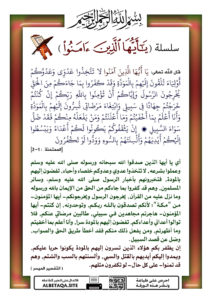 بسم الله الرحمن الرحيم
سلسلة ( يَا أَيُّهَا الَّذِينَ ءَامَنُوا )
قال الله تعالى: يَا أَيُّهَا الَّذِينَ آمَنُوا لَا تَتَّخِذُوا عَدُوِّي وَعَدُوَّكُمْ
أَوْلِيَاءَ تُلْقُونَ إِلَيْهِم بِالْمَوَدَّةِ وَقَدْ كَفَرُوا بِمَا جَاءَكُم مِّنَ الْحَقِّ
يُخْرِجُونَ الرَّسُولَ وَإِيَّاكُمْ أَن تُؤْمِنُوا بِاللَّهِ رَبِّكُمْ إِن كُنتُمْ
خَرَجْتُمْ جِهَادًا فِي سَبِيلِي وَابْتِغَاءَ مَرْضَاتِي تُسِرُّونَ إِلَيْهِم بِالْمَوَدَّةِ
وَأَنَا أَعْلَمُ بِمَا أَخْفَيْتُمْ وَمَا أَعْلَنتُمْ وَمَن يَفْعَلْهُ مِنكُمْ فَقَدْ ضَلَّ
سَوَاءَ السَّبِيلِ إِن يَثْقَفُوكُمْ يَكُونُوا لَكُمْ أَعْدَاءً وَيَبْسُطُوا
إِلَيْكُمْ أَيْدِيَهُمْ وَأَلْسِنَتَهُم بِالسُّوءِ وَوَدُّوا لَوْ تَكْفُرُونَ
[الممتحنة : ١-٢]
أي يا أيها الذين صدقوا الله سبحانه ورسوله صلى الله عليه وسلم
وعملوا بشرعه، لا تتخذوا عدوي وعدوكم خلصاء وأحباء، تفضون إليهم
بالمودة، فتخبرونهم بأخبار الرسول صلى الله عليه وسلم، وسائر
المسلمين، وهم قد كفروا بما جاءكم من الحق من الإيمان بالله ورسوله
وما نزل عليه من القرآن، يُخرجون الرسول ويُخرجونكم- أيها المؤمنون-
من "مكة"؛ لأنكم تصدقون بالله ربكم، وتوحدونه، إن كنتم- أيها
المؤمنون- هاجرتم مجاهدين في سبيلي، طالبين مرضاتي عنكم، فلا
توالوا أعدائي وأعداءكم، تُفضون إليهم بالمودة سرًا، وأنا أعلم بما أخفيتم
وما أظهرتم، ومن يفعل ذلك منكم فقد أخطأ طريق الحق والصواب،
وضل عن قصد السبيل.
إن يظفر بكم هؤلاء الذين تسرون إليهم بالمودة يكونوا حربا عليكم،
ويمدوا إليكم أيديهم بالقتل والسبي، وألسنتهم بالسب والشتم، وهم
قد تمنوا- على كل حال- لو تكفرون مثلهم.
[ التفسير الميسر ]
BETAQA.SITE